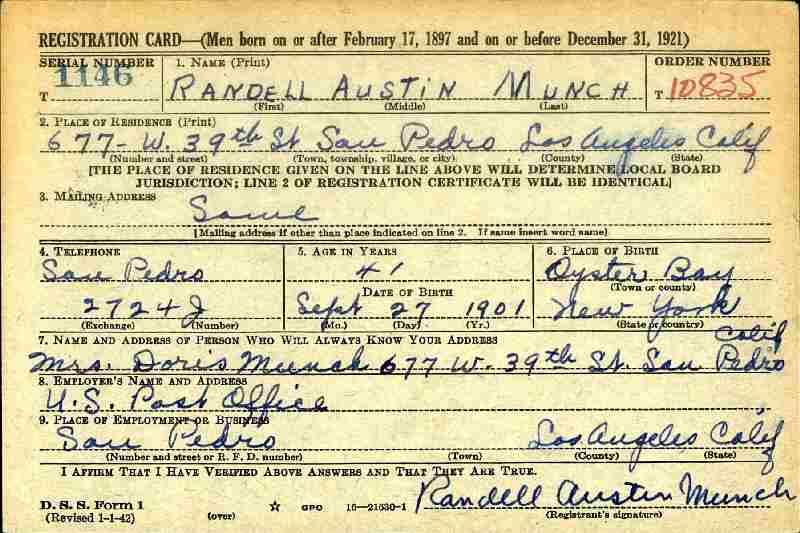 REGISTRATION CARD—(Men born on or after February 17, 1897 and on or before December 31, 1921)
SERIAL NUMBER 1. NAME (Print) ORDER NUMBER
T 1146 RANDELL AUSTIN MUNCH T 10835
(First) (Middle) (Last)
2. PLACE OF RESIDENCE (Print)
677- W. 39th St San Pedro Los Angeles Calif
(Number and street) (Town, township, village, or city) (County) (State)
[THE PLACE OF RESIDENCE GIVEN ON THE LINE ABOVE WILL DETERMINE LOCAL BOARD
JURISDICTION; LINE 2 OF REGISTRATION CERTIFICATE WILL BE IDENTICAL]
3. MAILING ADDRESS
Same
[Mailing address if other than place indicated on line 2. If same insert word same]
4. TELEPHONE 5. AGE IN YEARS 6. PLACE OF BIRTH
San Pedro 41 Oyster Bay
DATE OF BIRTH (Town or county)
2724J Sept 27 1901 New York
(Exchange) (Number) (Mo.) (Day) (Yr.) (State or country)
7. NAME AND ADDRESS OF PERSON WHO WILL ALWAYS KNOW YOUR ADDRESS Calif
Mrs. Doris Munch 677 W. 39th St. San Pedro
8. EMPLOYER'S NAME AND ADDRESS
U.S. Post Office
9. PLACE OF EMPLOYMENT OR BUSINESS
San Pedro Los Angeles Calif
(Number and street or R. F. D. number) (Town) (County) (State)
I AFFIRM THAT I HAVE VERIFIED ABOVE ANSWERS AND THAT THEY ARE TRUE.
D. S. S. Form 1
(Revised 1-1-42) (over) ☆ GPO 16—21630-1 Randell Austin Munch
(Registrant's signature)